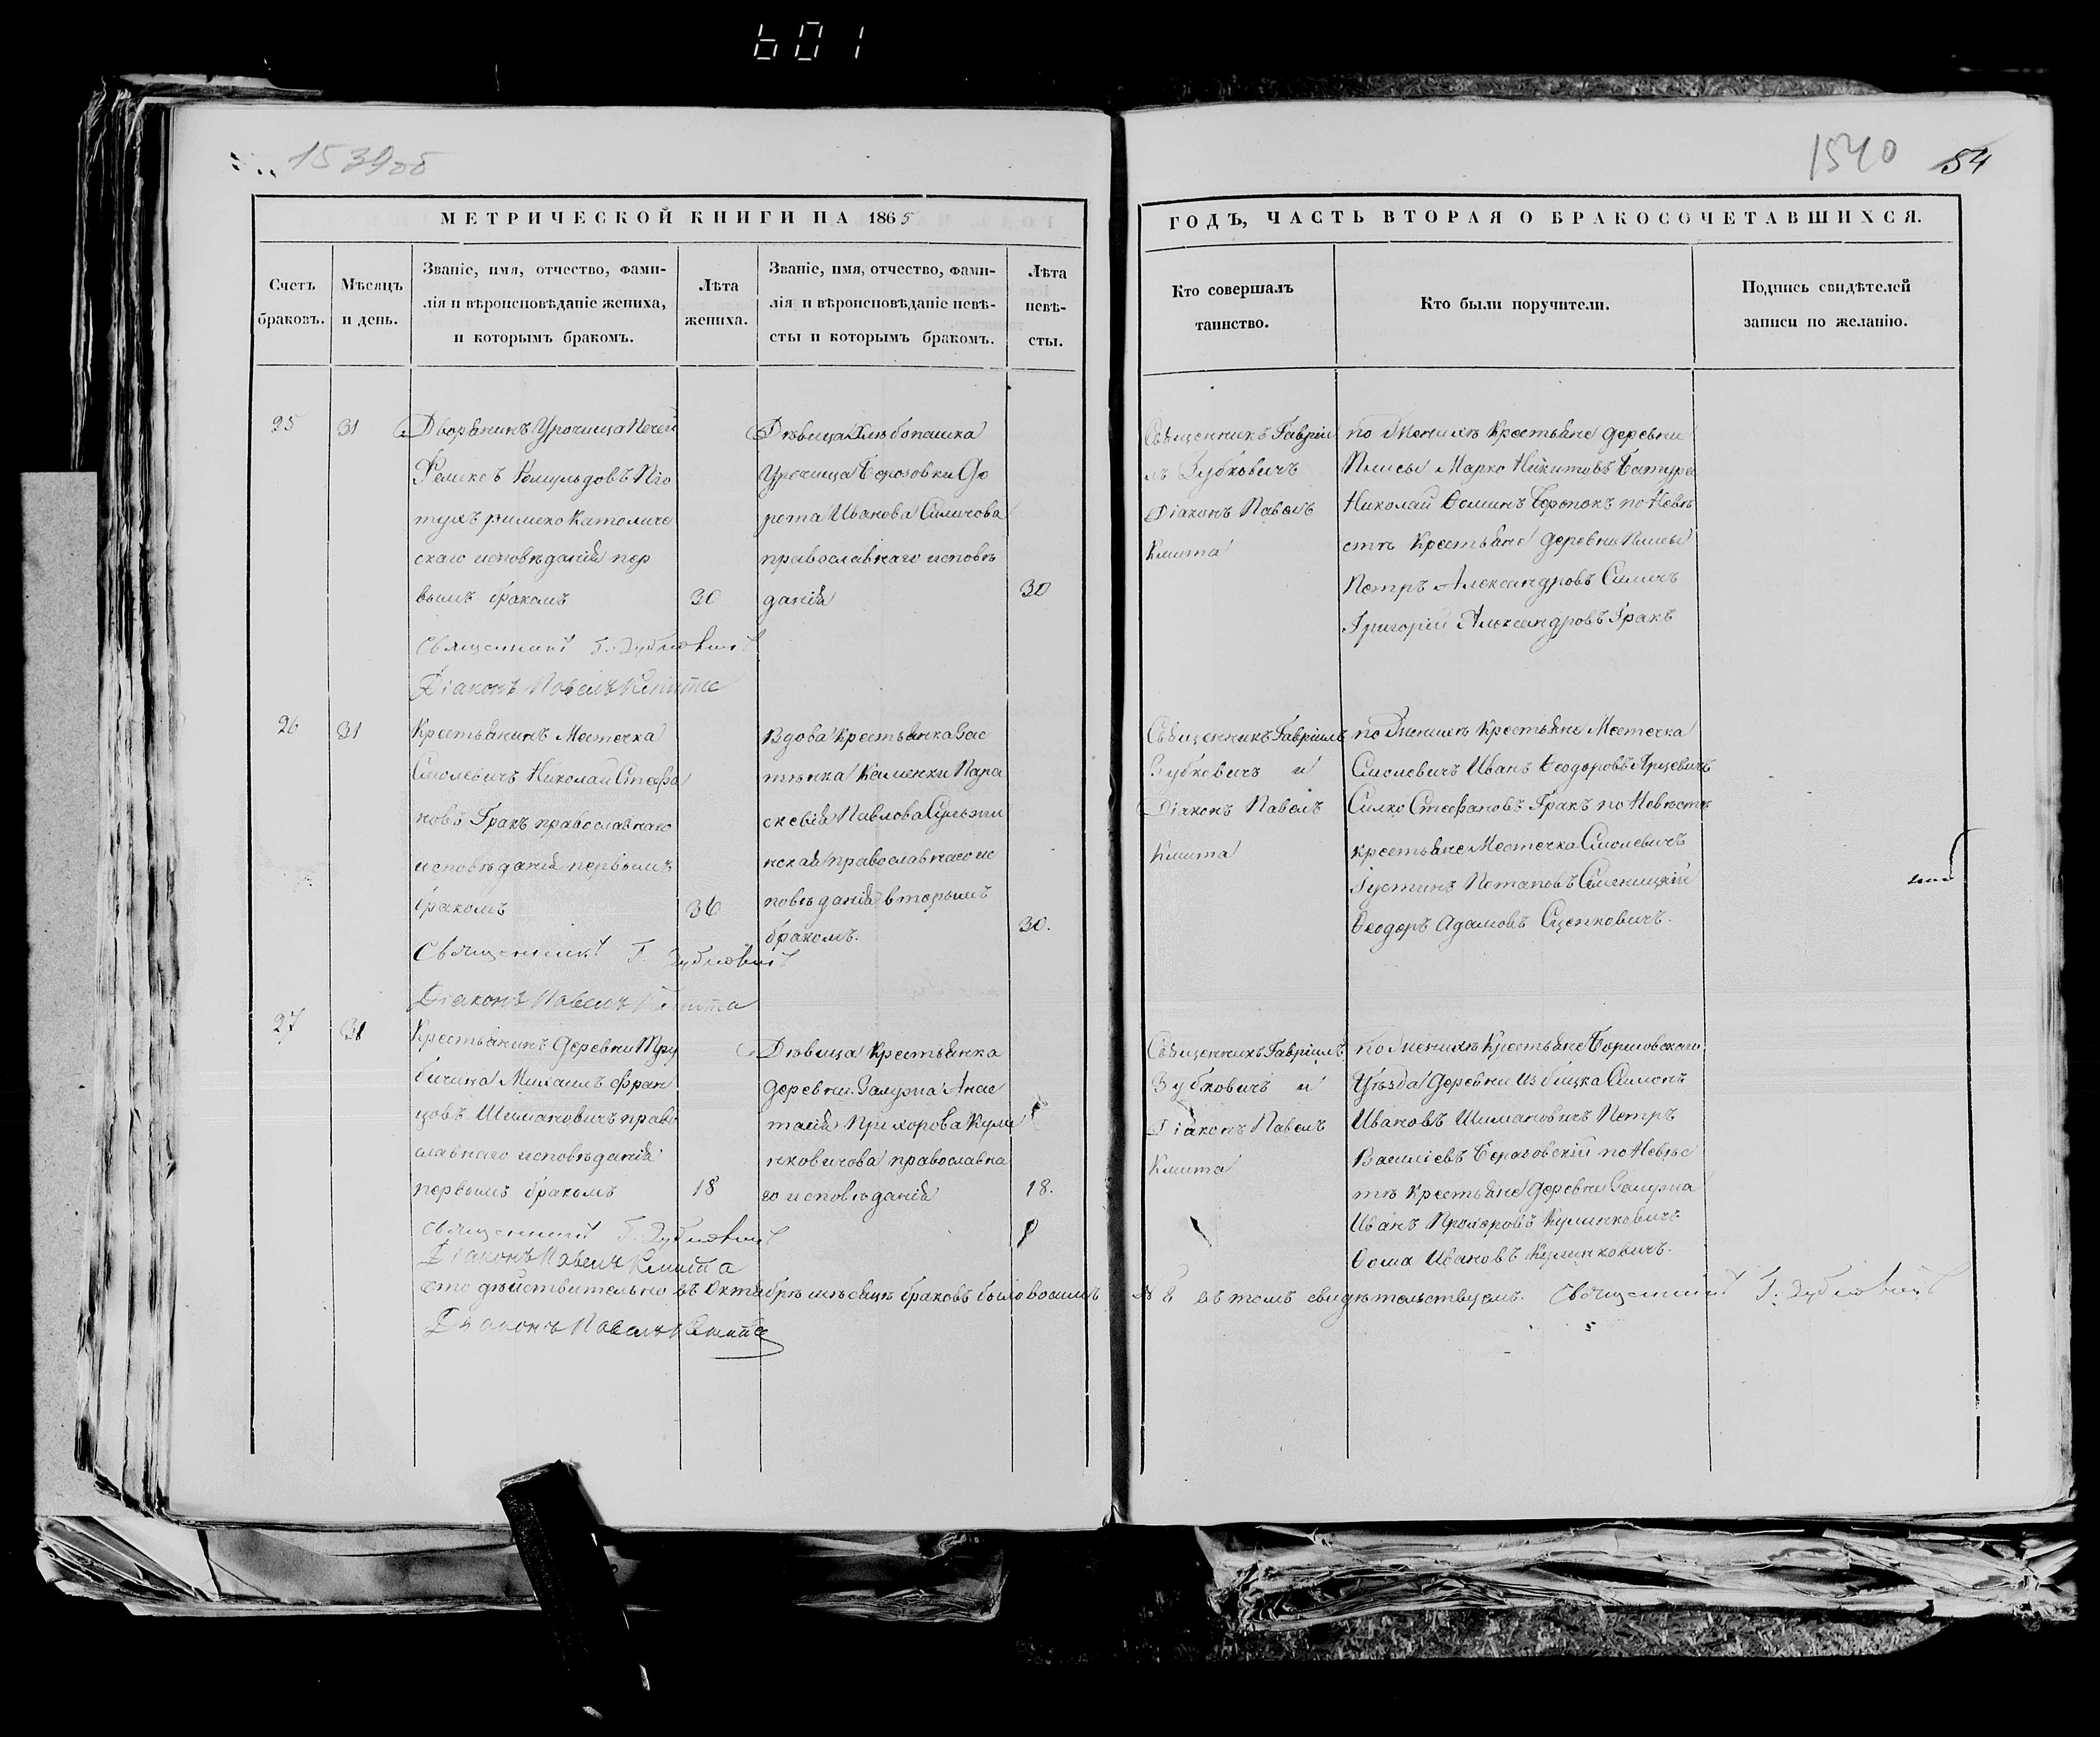 601
1539об
1540 54
МЕТРИЧЕСКОЙ КНИГИ НА 1865
ГОДЪ, ЧАСТЬ ВТОРАЯ О БРАКОСОЧЕТАВШИХСЯ.
Счетъ
браковъ.
Мѣсяцъ
и день.
Званіе, имя, отчество, фами-
лія и вѣроисповѣданіе жениха,
и которымъ бракомъ.
Лѣта
жениха.
Званіе, имя, отчество, фами-
лія и вѣроисповѣданіе невѣ-
сты и которымъ бракомъ.
Лѣта
невѣ-
сты.
Кто совершалъ
таинство.
Кто были поручители.
Подпись свидѣтелей
записи по желанію.
25
31
Дворянинъ Урочища
Феликсъ Ромульдовъ Пѣо
тухъ римско Католиче
скаго исповѣданія пер
вымъ бракомъ
30
Священникъ Г. Зубковичъ
Діаконъ Павелъ Кмита
Дѣвица Хлѣбопашка
Урочища Борозовки До
рота Иванова Силичова
православнаго исповѣ
данія
30
Священникъ Гавріи
лъ Зубковичъ
Діаконъ Павелъ
Кмита
по Женихѣ Крестьяне деревни
Плисы Марко Никитовъ Батура
Николай Ѳоминъ по Невѣ
стѣ Крестьяне деревни Плисы
Петръ Александровъ Силичъ
Григорій Александровъ Гракъ
26
31
Крестьянинъ Местечка
Смолевичъ Николай Стефа
новъ Гракъ православнаго
исповѣданія первымъ
бракомъ
36
Священникъ Г. Зубковичъ
Діаконъ Павелъ Кмита
Вдова Крестьянка Зас
тѣнка Каменки Пара
скевія Павлова
православнаго ис
повѣданія вторымъ
бракомъ.
30.
Священникъ Гавріилъ
Зубковичъ и
Діаконъ Павелъ
Кмита
по Женихѣ Крестьяне Местечка
Смолевичъ Иванъ Ѳеодоровъ Ярцевичъ
Силко Стефановъ Гракъ по Невѣстѣ
крестьяне Местечка Смолевичъ
Іустинъ Потаповъ
Ѳеодоръ Адамовъ Сценковичъ.
27
31
Крестьянинъ деревни Тру
бичина Михаилъ Фран
цовъ Шимановичъ право
славнаго исповѣданія
первымъ бракомъ
18
Священникъ Г. Зубковичъ
Діаконъ Павелъ Кмита
Дѣвица Крестьянка
деревни Залужа Анас
тасія Прихорова Кули
нковичова православна
го исповѣданія
18.
Священникъ Гавріилъ
Зубковичъ и
Діаконъ Павелъ
Кмита
по Женихѣ Крестьяне Борисовскаго
Уѣзда деревни Избицка Симонъ
Ивановъ Шимановичъ Петръ
Василіевъ по Невѣс
тѣ Крестьяне деревни Залужа
Иванъ Прохоровъ Кулинковичъ
Ѳома Ивановъ Кулинковичъ.
что дѣйствительно въ Октябрѣ мѣсяцѣ браковъ было восимъ № 8 въ томъ свидѣтельствуемъ. Священникъ Г. Зубковичъ
Діаконъ Павелъ Кмита